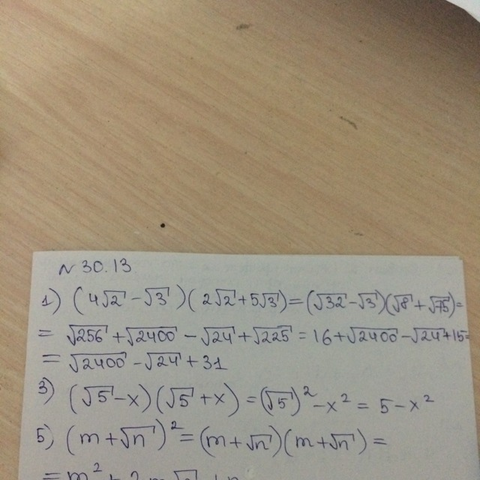 N 30.13
1) (4√2 - √3)(2√2 + 5√3) = (√32 - √3)(√8 + √75) =
= √256 + √2400 - √24 + √225 = 16 + √2400 - √24 + 15 =
= √2400 - √24 + 31
3) (√5 - x)(√5 + x) = (√5)² - x² = 5 - x²
5) (m + √n)² = (m + √n)(m + √n) =
= m² + 2m√n +